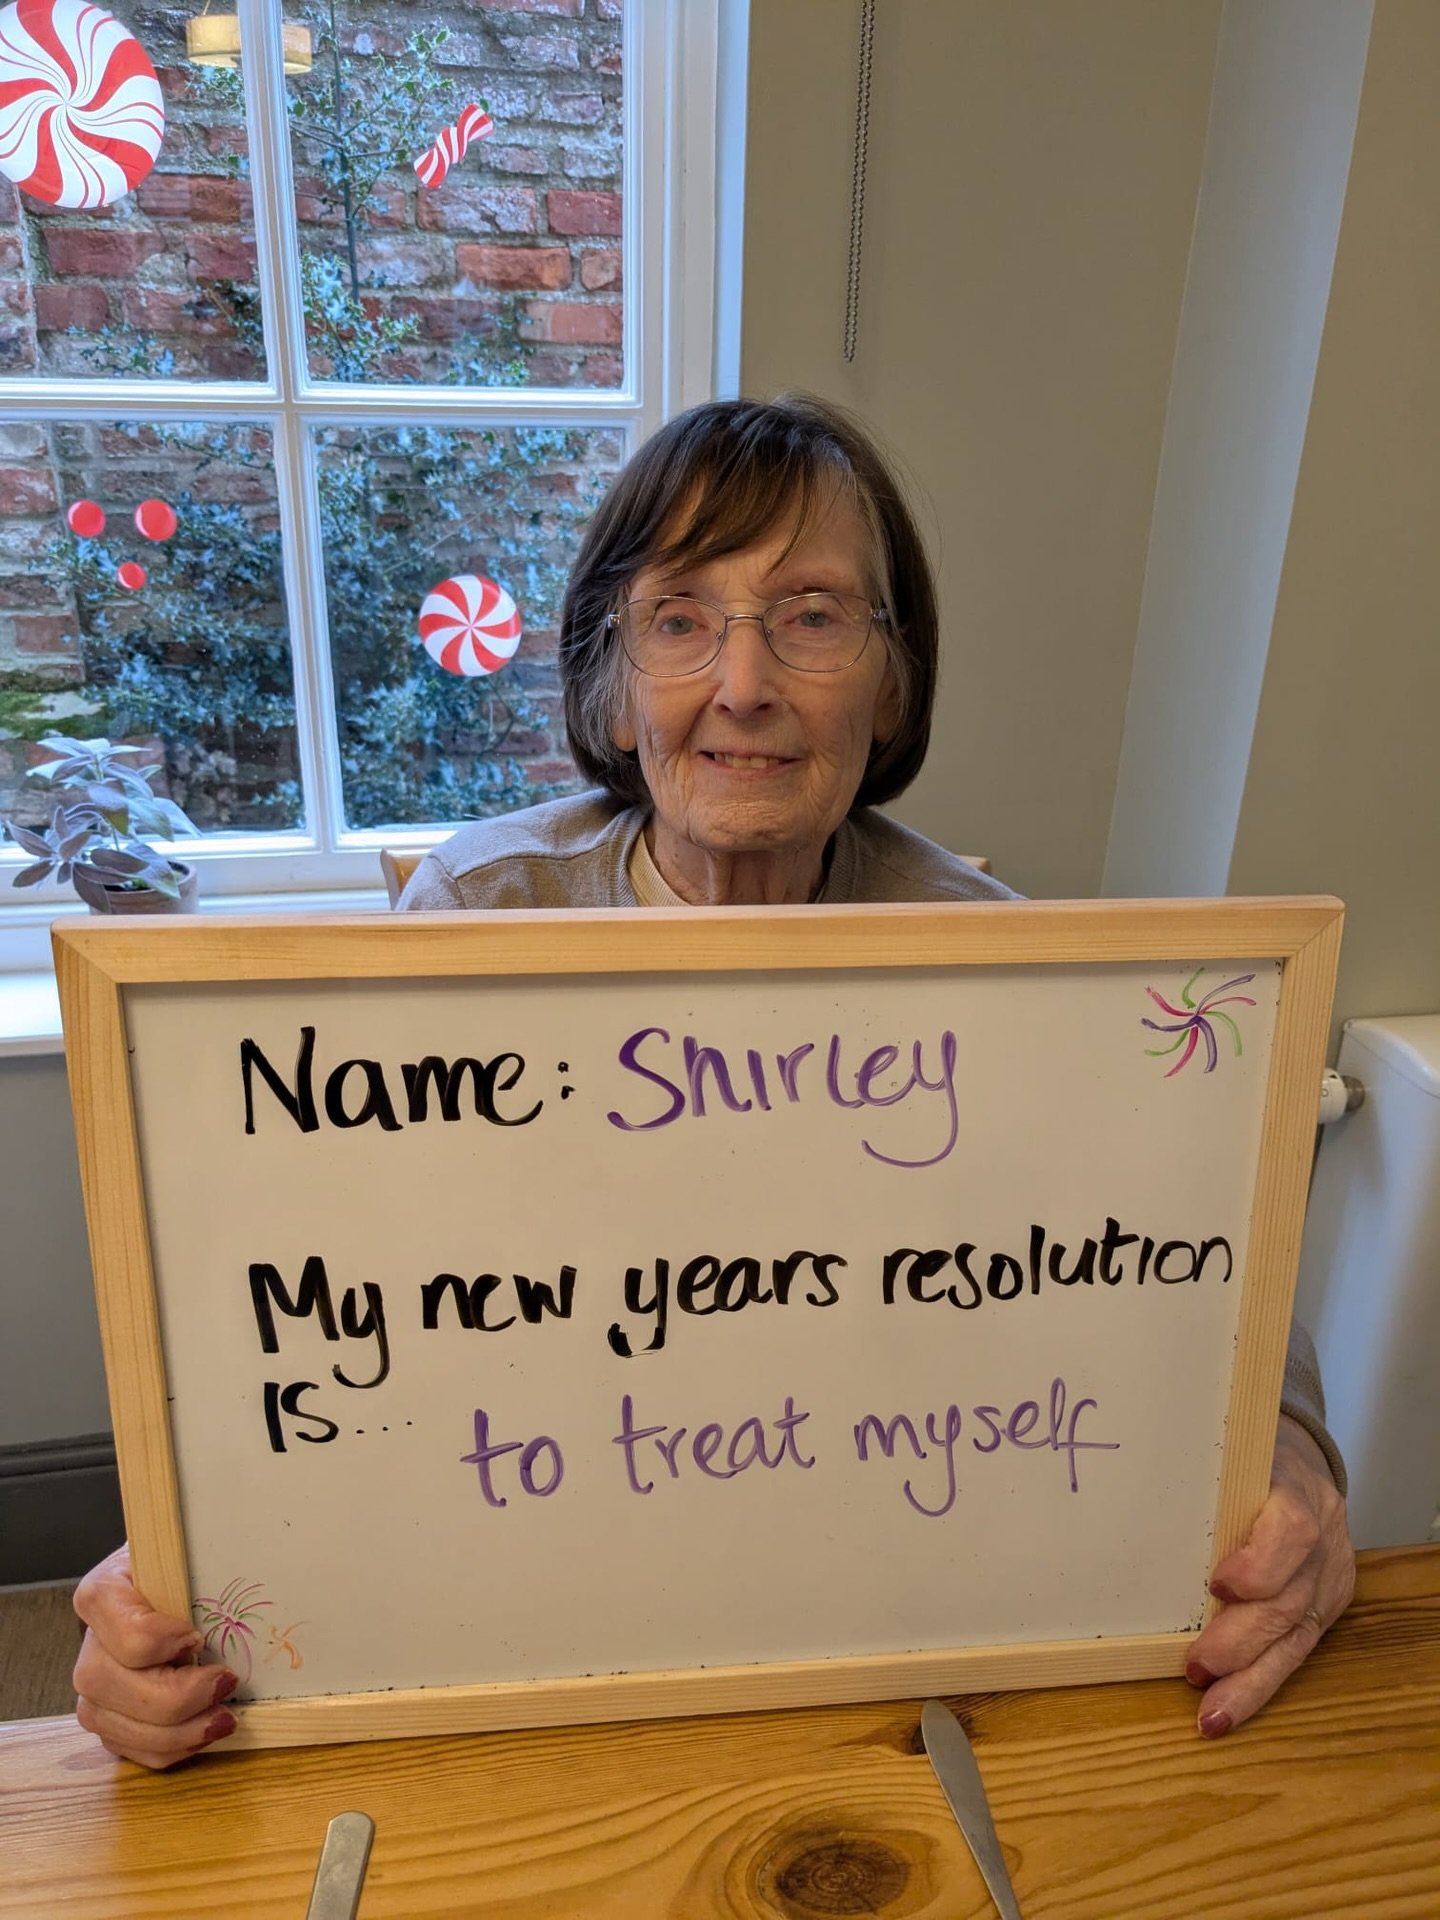 Name: Shirley
My new years resolution
is... to treat myself